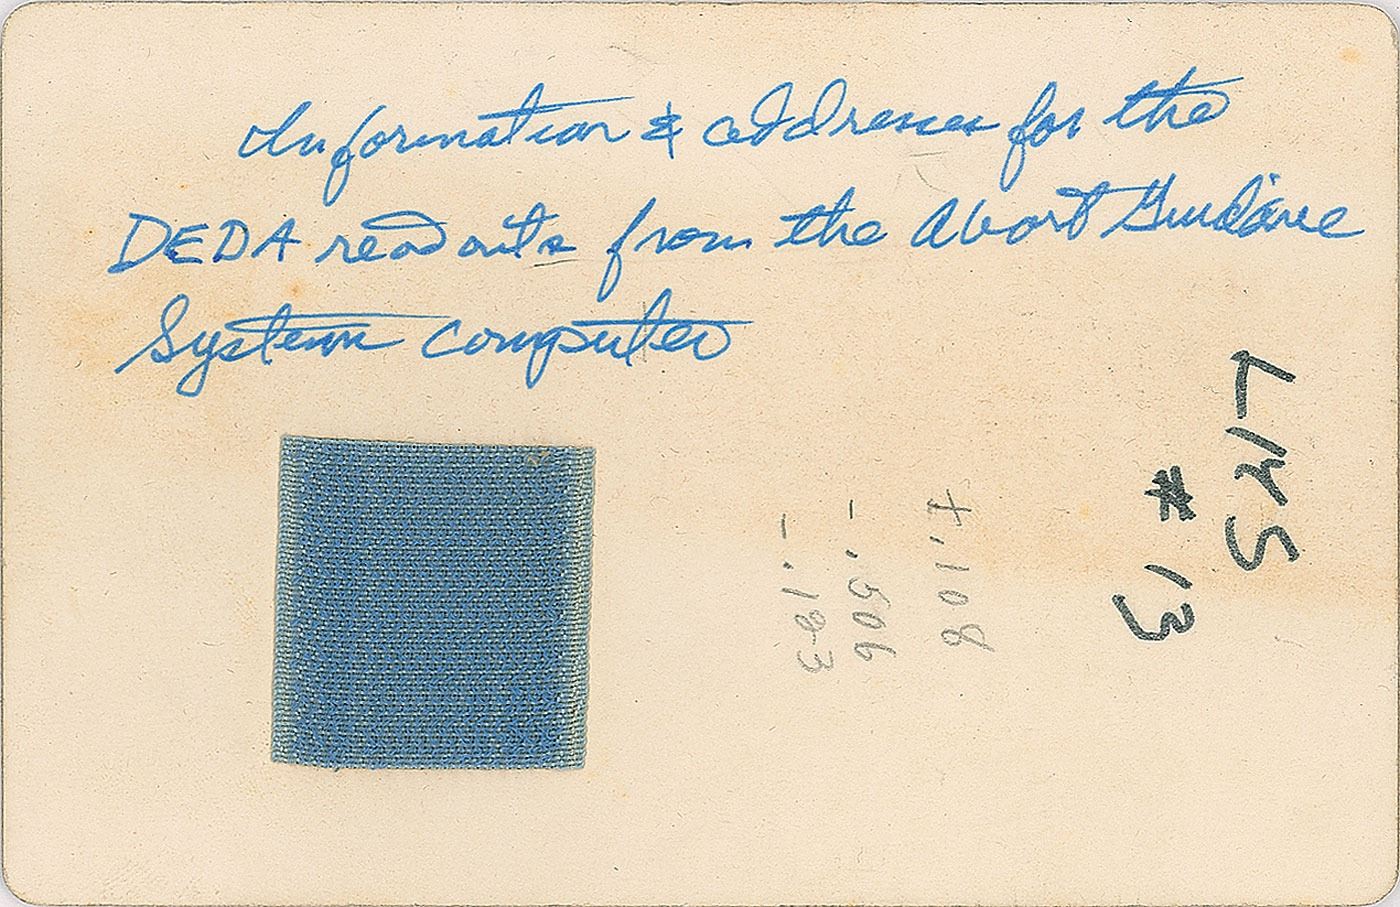 Information & addresses for the
DEDA readouts from the Abort Guidance
System computer
LKS
# 13
+.108
-.506
-.193